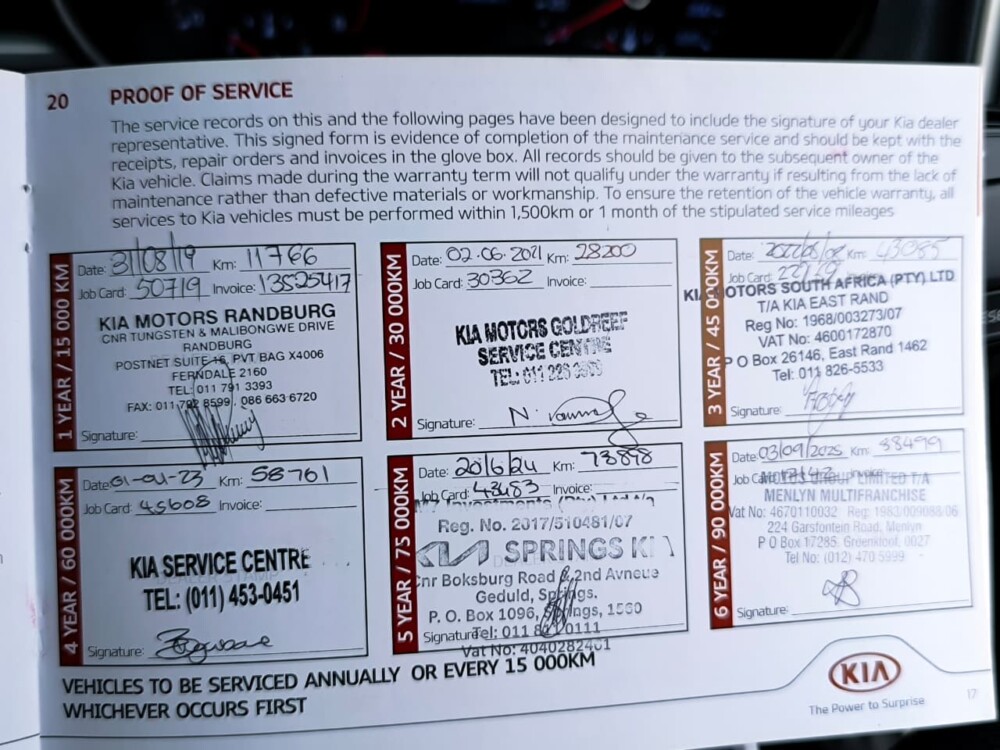 20 PROOF OF SERVICE
The service records on this and the following pages have been designed to include the signature of your Kia dealer
representative. This signed form is evidence of completion of the maintenance service and should be kept with the
receipts, repair orders and invoices in the glove box. All records should be given to the subsequent owner of the
Kia vehicle. Claims made during the warranty term will not qualify under the warranty if resulting from the lack of
maintenance rather than defective materials or workmanship. To ensure the retention of the vehicle warranty, all
services to Kia vehicles must be performed within 1,500km or 1 month of the stipulated service mileages
1 YEAR / 15 000 KM
Date: 31/08/19 Km: 11766
Job Card: 50719 Invoice: 13525417
KIA MOTORS RANDBURG
CNR TUNGSTEN & MALIBONGWE DRIVE
RANDBURG
POSTNET SUITE 16, PVT BAG X4006
FERNDALE 2160
TEL: 011 791 3393
FAX: 011 792 8599, 086 663 6720
Signature:
2 YEAR / 30 000KM
Date: 02.06.2021 Km: 28200
Job Card: 30362 Invoice:
KIA MOTORS GOLDREEF
SERVICE CENTRE
TEL: 011
Signature:
3 YEAR / 45 000KM
Date: Km: 43085
Job Card:
KIA MOTORS SOUTH AFRICA (PTY) LTD
T/A KIA EAST RAND
Reg No: 1968/003273/07
VAT No: 4600172870
P O Box 26146, East Rand 1462
Tel: 011 826-5533
Signature:
4 YEAR / 60 000KM
Date: 01-04-23 Km: 58761
Job Card: 45608 Invoice:
KIA SERVICE CENTRE
TEL: (011) 453-0451
Signature:
5 YEAR / 75 000KM
Date: 20/6/24 Km: 73898
Job Card: 43483 Invoice:
Investments
Reg. No. 2017/510481/07
KIA SPRINGS KIA
Cnr Boksburg Road & 2nd Avneue
Geduld, Springs.
P. O. Box 1096, Springs, 1560
Signature: Tel: 011 0111
Vat No: 4040282401
6 YEAR / 90 000KM
Date: 03/09/2025 Km: 88499
Job Card: LIMITED T/A
MENLYN MULTIFRANCHISE
Vat No: 4670110032 Reg: 1983/009088/06
224 Garsfontein Road, Menlyn
P O Box 17285, Groenkloof, 0027
Tel No: (012) 470 5999
Signature:
VEHICLES TO BE SERVICED ANNUALLY OR EVERY 15 000KM
WHICHEVER OCCURS FIRST
KIA
The Power to Surprise
17